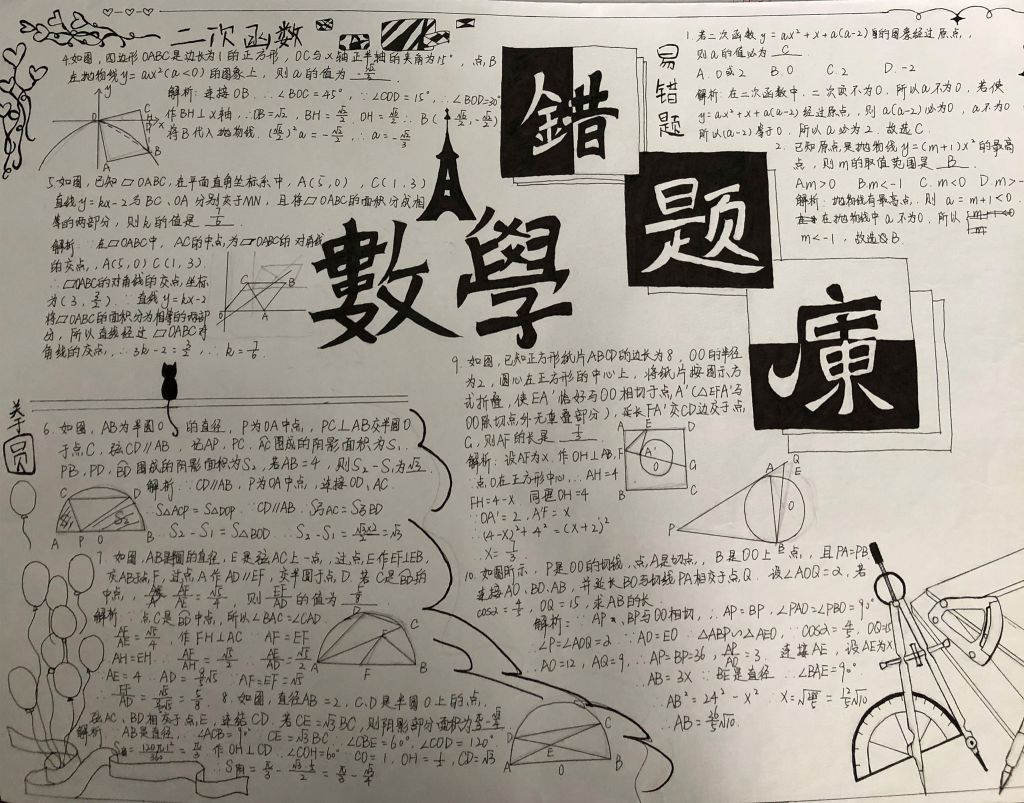 二次函数
4.如图，四边形OABC是边长为1的正方形，OC与x轴正半轴的夹角为15°，点B
在抛物线y=ax²(a<0)的图象上，则a的值为
解析：连接OB.∴∠BOC=45°，∵∠COD=15°，∴∠BOD=30°
作BH⊥x轴，∴OB=√2，BH=√2/2，OH=√6/2∴B(√6/2,-√2/2)
将B代入抛物线.(√6/2)²a=-√2/2，∴a=-√2/3
5.如图，已知▱OABC，在平面直角坐标系中，A(5,0)，C(1,3)
直线y=kx-2与BC、OA分别交于MN，且将▱OABC的面积分成相
等的两部分，则k的值是 7/6
解析：∵在▱OABC中，AC的中点为▱OABC的对角线
的交点，A(5,0)C(1,3)
∴▱OABC的对角线的交点坐标
为(3,3/2).∵直线y=kx-2
将▱OABC的面积分为相等的两部
分，所以直线经过▱OABC对
角线的交点，∴3k-2=3/2，∴k=7/6
數學
錯
題
易错题
1.若二次函数y=ax²+x+a(a-2)的图象经过原点，
则a的值必为 C
A.0或2 B.0 C.2 D.-2
解析：在二次函数中，二次项不为0，所以a不为0，若使
y=ax²+x+a(a-2)经过原点，则a(a-2)必为0，a不为0
所以(a-2)等于0，所以a必为2.故选C.
2.已知原点是抛物线y=(m+1)x²的最高
点，则m的取值范围是 B
A.m>0 B.m<-1 C.m<0 D.m>-
解析：抛物线有最高点，则a=m+1<0
在抛物线中a不为0，所以
m<-1，故选B
关于圆
6.如图，AB为半圆O的直径，P为OA中点，PC⊥AB交半圆O
于点C，弦CD∥AB，记AP、PC、围成的阴影面积为S₁.
PB、PD、围成的阴影面积为S₂，若AB=4，则S₂-S₁为√3
解析：∵CD∥AB，P为OA中点，连接OD、AC
S△ACP=S△DOP.∵CD∥AB.S弓AC=S弓BD
∴S₂-S₁=S△BOD.∴S₂-S₁=√3×2/2=√3
C D
S₁ S₂
A P O B
7.如图，AB是半圆的直径，E是弦AC上一点，过点E作EF⊥EB，
交AB于点F，过点A作AD∥EF，交半圆于点D.若C是的
中点，AF/AE=√5/4 则EF/AD的值为
解析：点C是中点，所以∠BAC=∠CAD
AF/AE=√5/4 作FH⊥AC ∵AF=EF
8.如图，直径AB=2，C、D是半圆O上的点，
弦AC、BD相交于点E，连结CD.若CE=√3BC，则阴影部分面积为
解析：AB是直径，∴∠ACB=90° CE=√3BC.∠CBE=60°，∠COD=120°
作OH⊥CD.∠COH=60° CO=1，OH=1/2，CD=√3
9.如图，已知正方形纸片ABCD的边长为8，⊙O的半径
为2，圆心在正方形的中心上，将纸片按图示方
式折叠，使EA'恰好与⊙O相切于点A'(△EFA'与
⊙O除切点外无重叠部分)，延长FA'交CD边于点
G，则AF的长是 1/3
解析：设AF为x.作OH⊥AB，
点O在正方形中心，∴AH=4
FH=4-x 同理OH=4
∵OA'=2，A'F=x
∴(4-x)²+4²=(x+2)²
∴x=
10.如图所示，P是⊙O的切线，点A是切点，B是⊙O上一点，且PA=PB
连接AO、BO、AB，并延长BO与切线PA相交于点Q.设∠AOQ=α，若
cosα=4/5，OQ=15，求AB的长.
解析：∵AP、BP与⊙O相切，∴AP=BP，∠PAO=∠PBO=90°
∴∠P=∠AOQ=α ∵AO=EO ∴△ABP∽△AEO，∵cosα=4/5，OQ=15
∴AO=12，AQ=9.∴AP=BP=36，AP/AO=3.连接AE，设AE为x
∴AB=3x ∵BE是直径 ∴∠BAE=90°
∴AB²=24²-x²